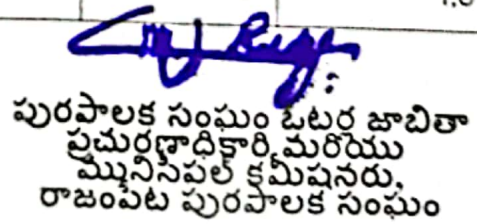 పురపాలక సంఘం ఓటర్ల జాబితా
ప్రచురణాధికారి మరియు
మునిసిపల్ కమీషనరు,
రాజంపేట పురపాలక సంఘం